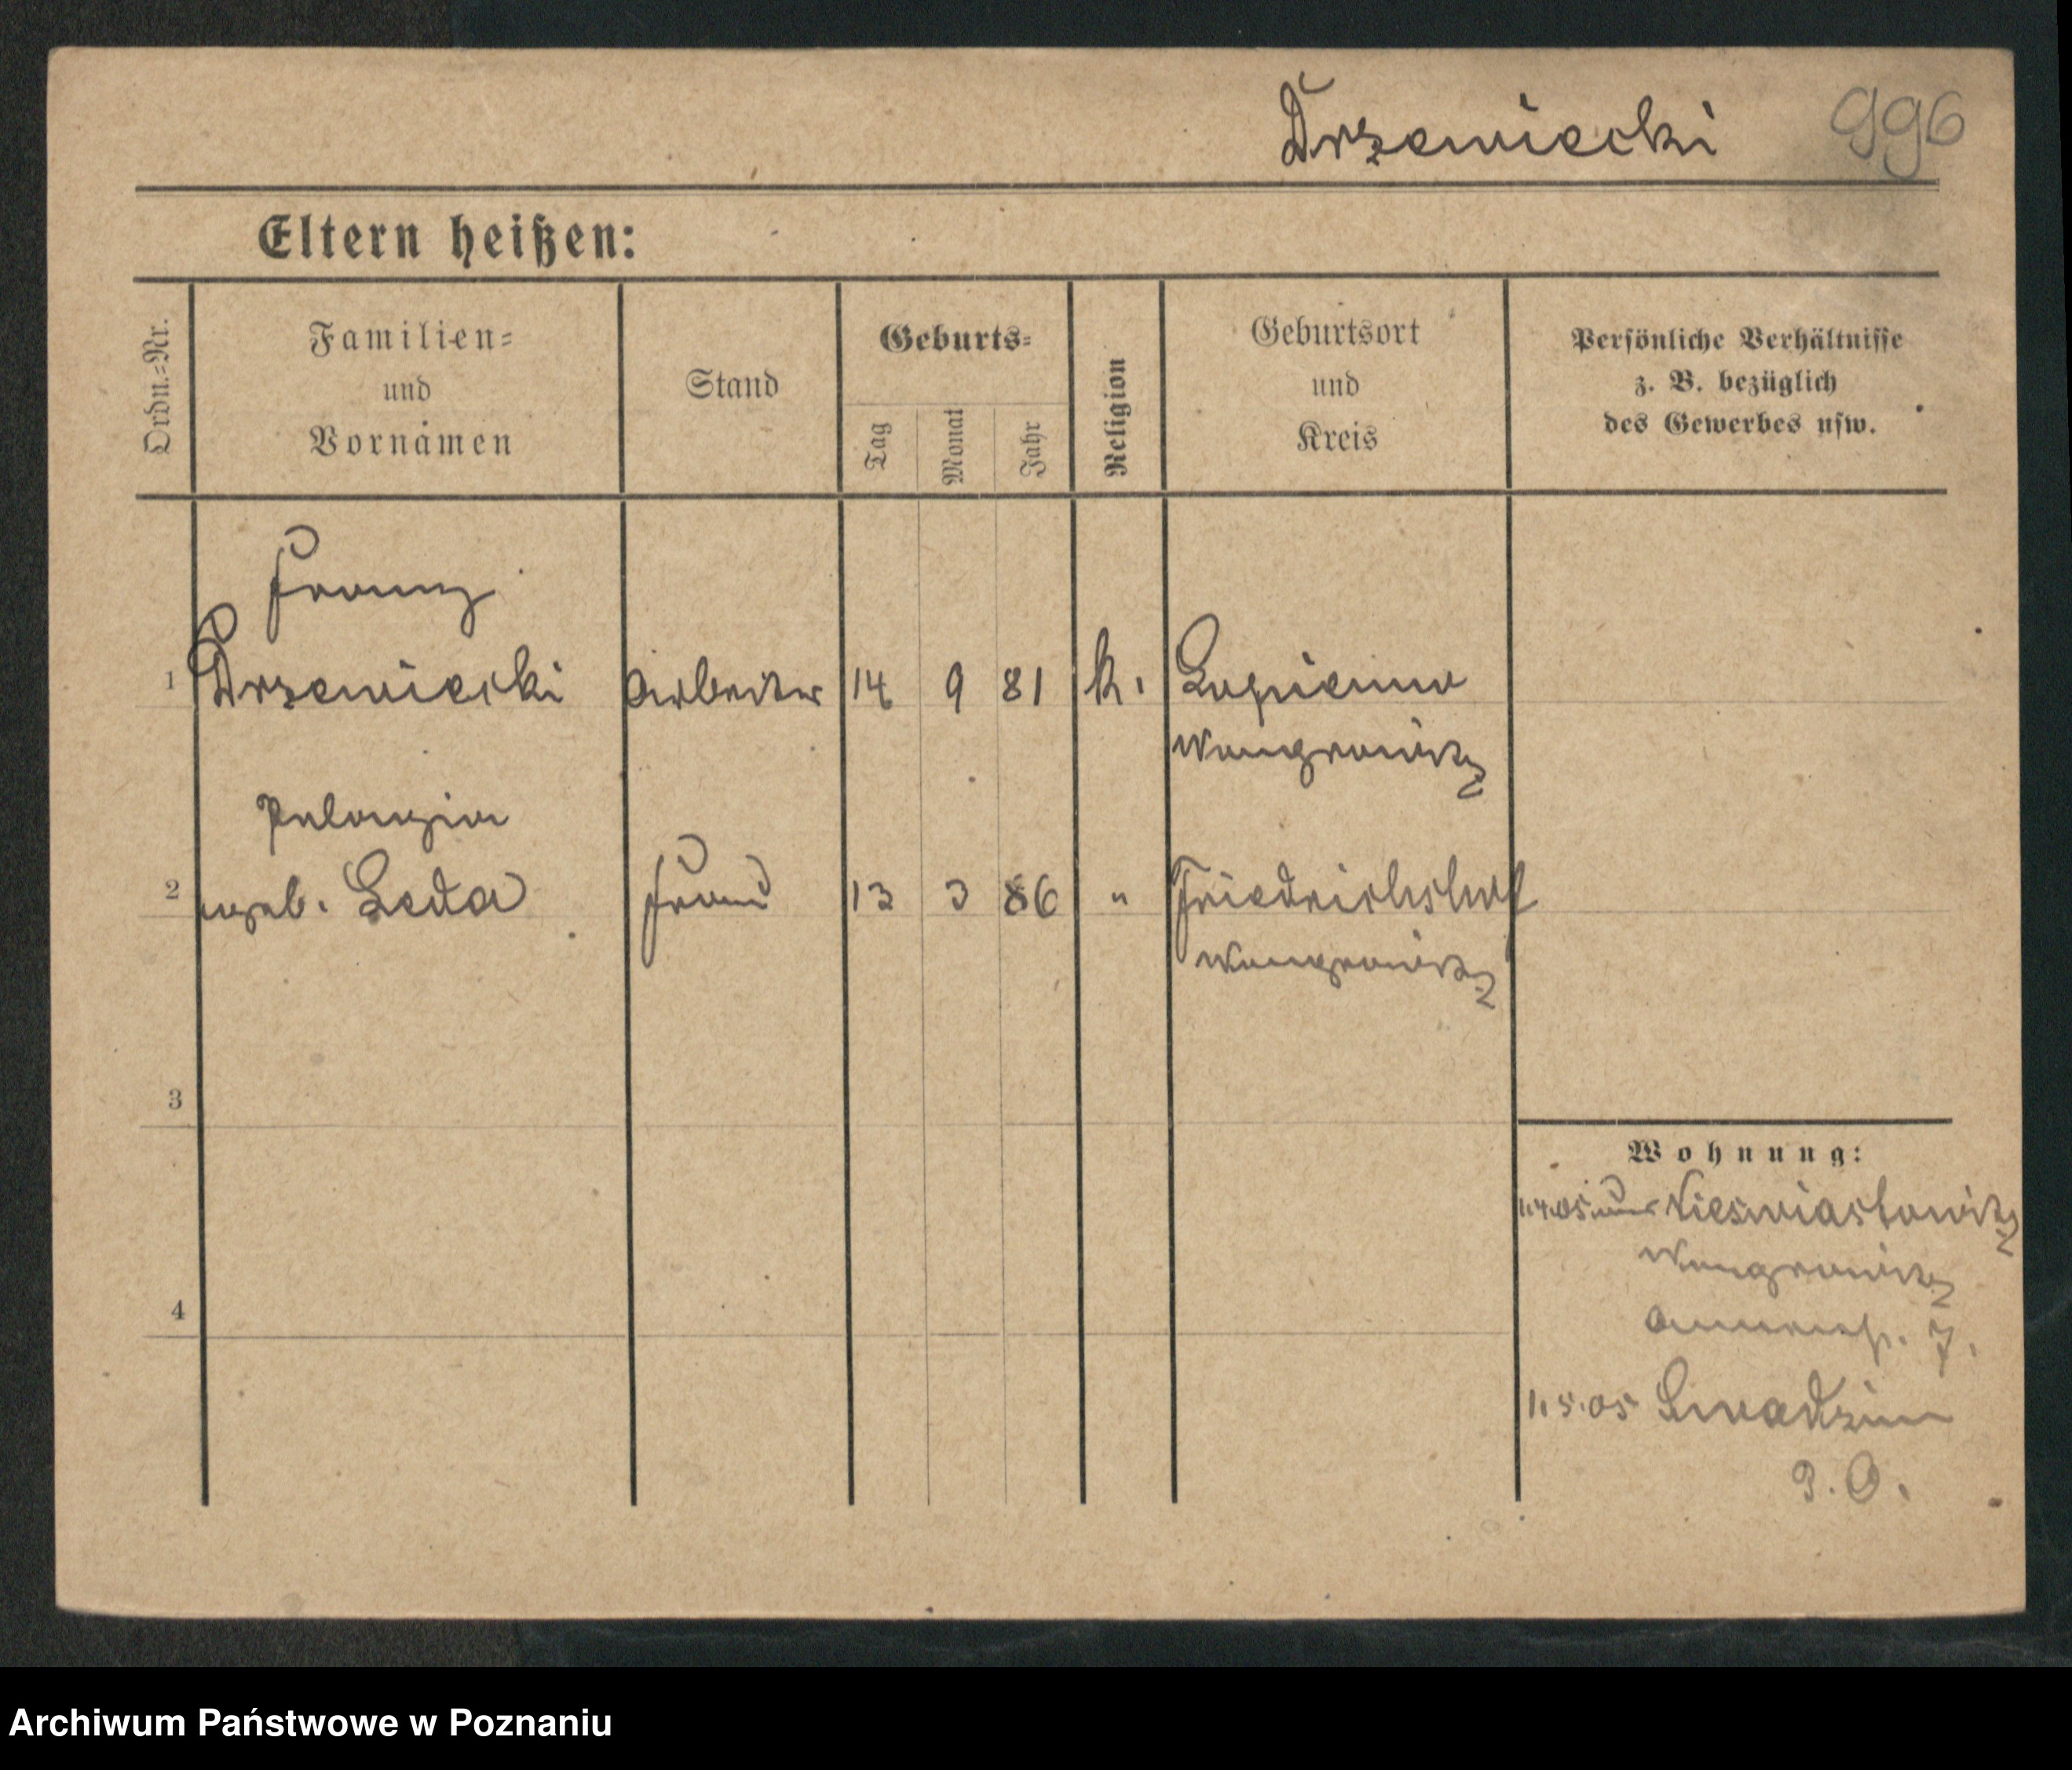 Drzewiecki 996
Eltern heißen:
Ordn.=Nr.
Familien=
und
Vornamen
Stand
Geburts=
Tag
Monat
Jahr
Religion
Geburtsort
und
Kreis
Persönliche Verhältnisse
z. B. bezüglich
des Gewerbes usw.
Franz
1 Drzewiecki Arbeiter 14 9 81 k. Lopienno
Wongrowitz
Pelagia
2 geb. Leda Frau 13 3 86 " Friedrichshof
Wongrowitz
3
Wohnung:
1.4.05 Nieswiastowitz
Wongrowitz
4
7.
1.5.05
P. O.
Archiwum Państwowe w Poznaniu